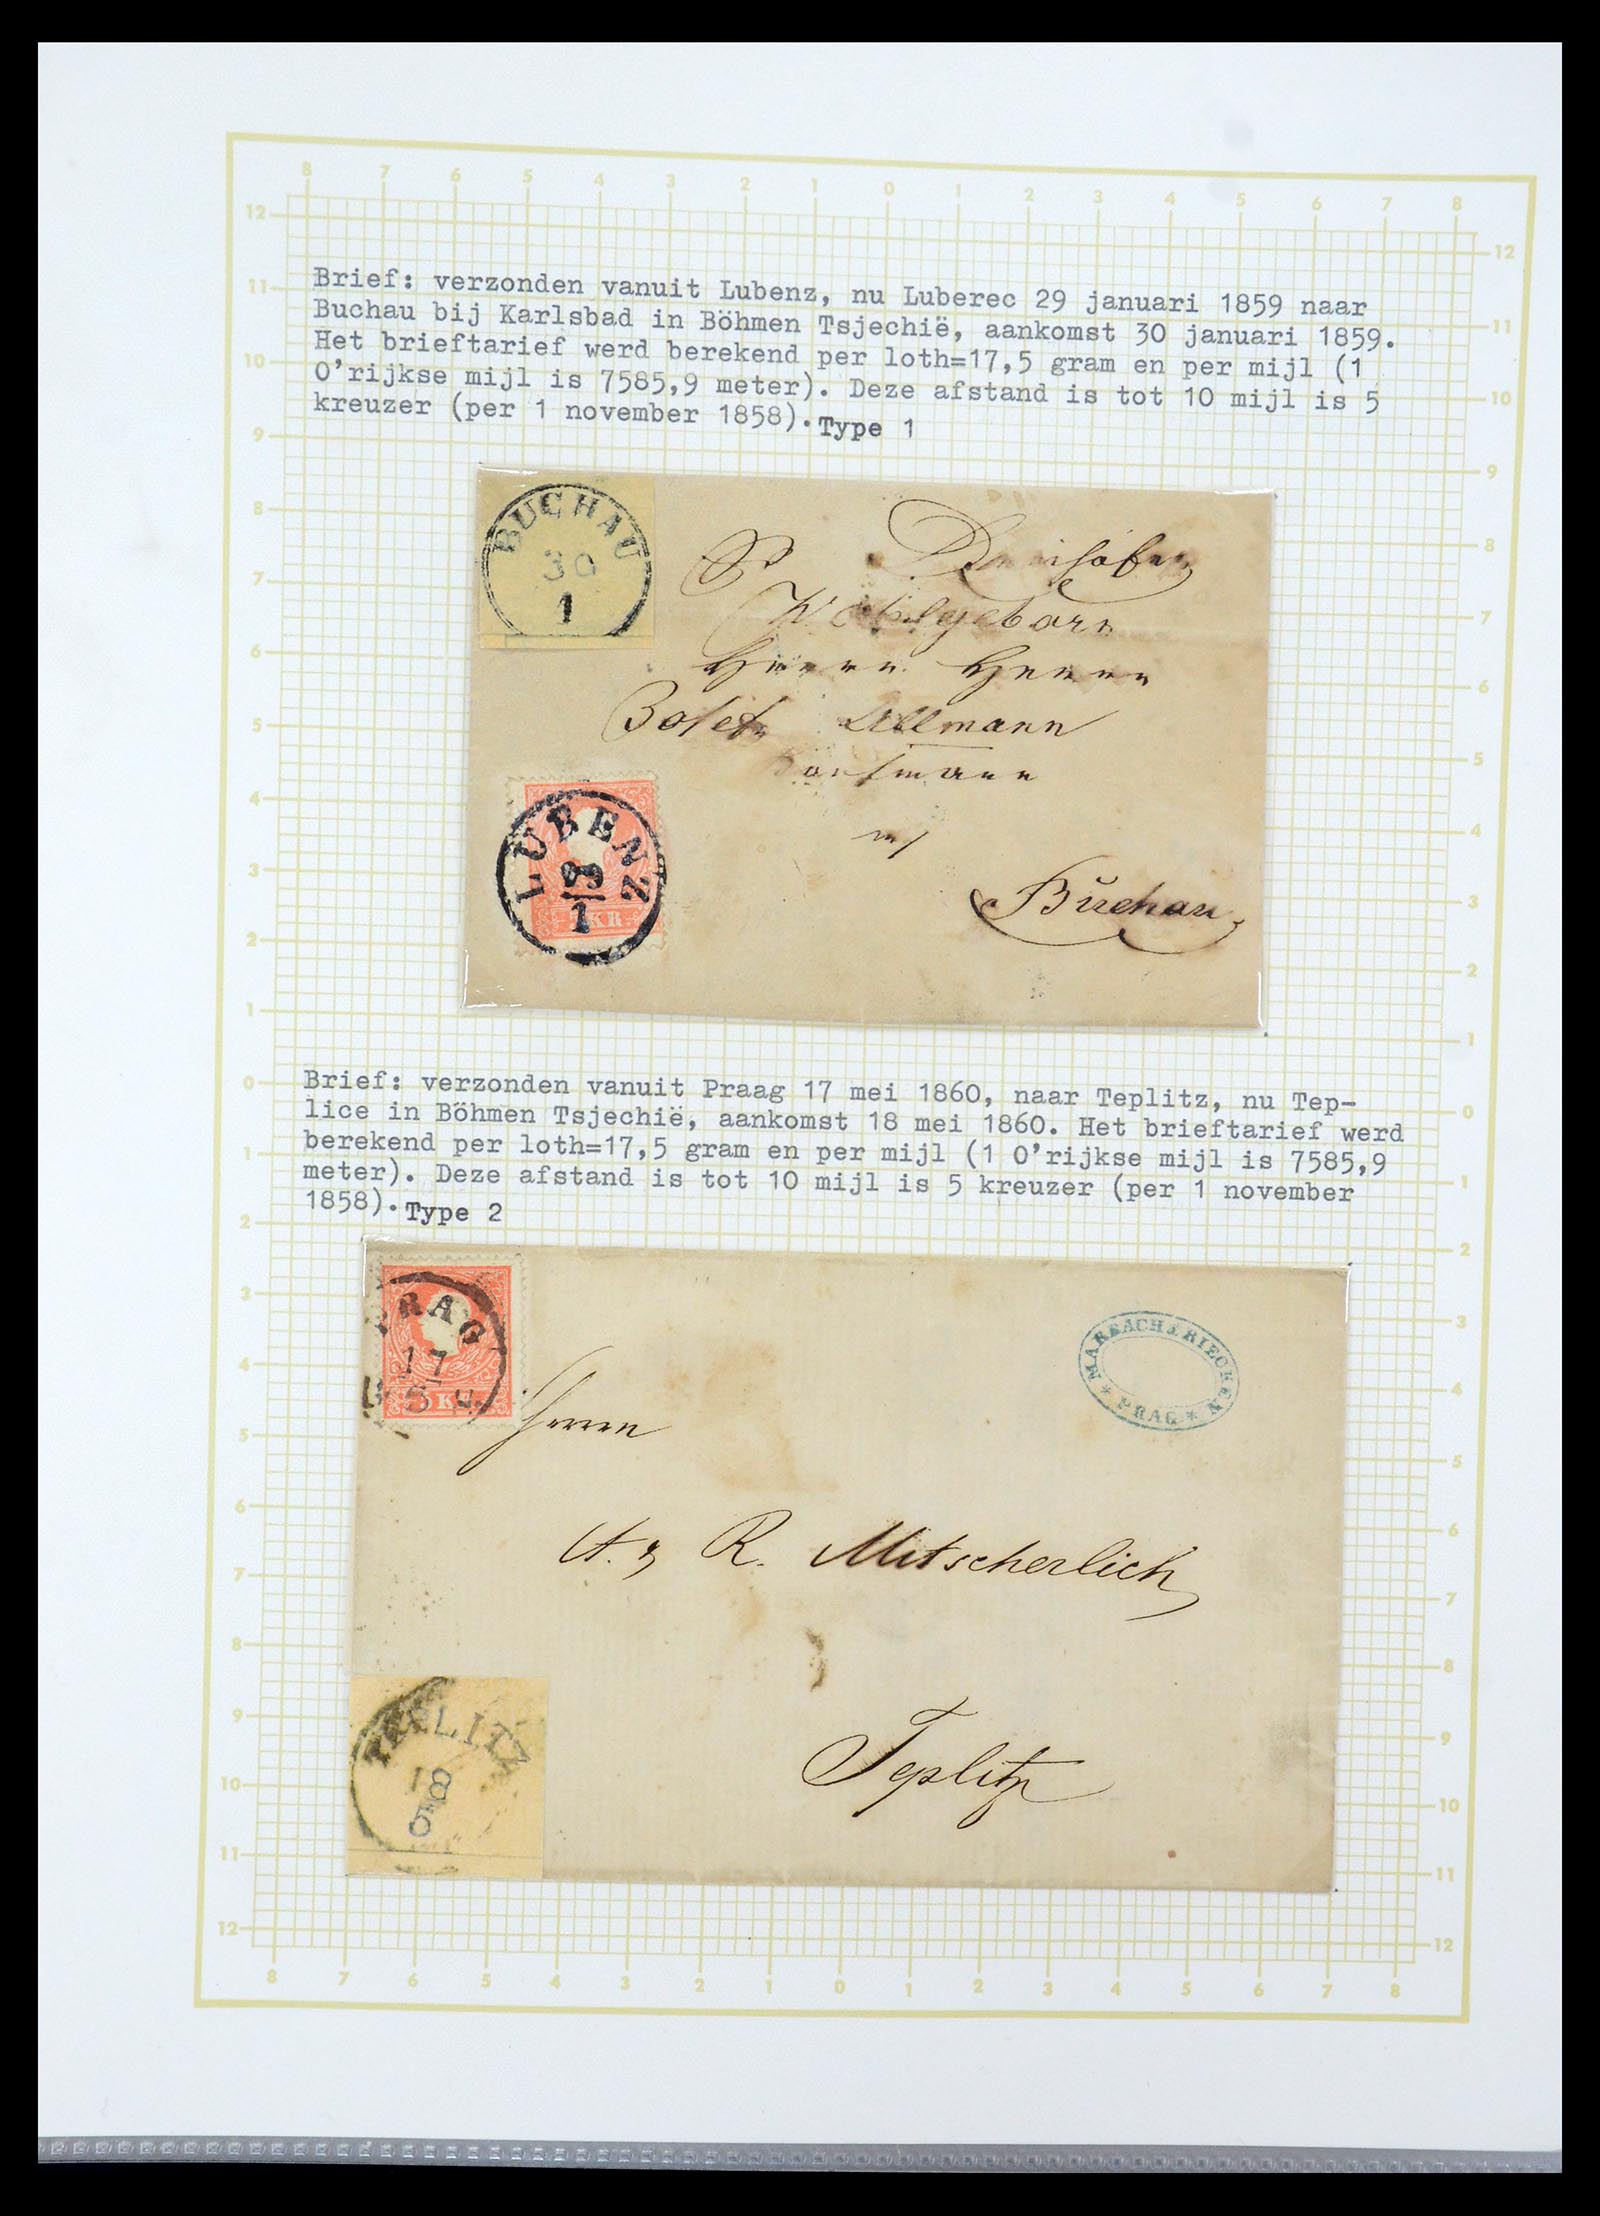 8 7 6 5 4 3 2 1 0 1 2 3 4 5 6 7 8
Brief: verzonden vanuit Lubenz, nu Luberec 29 januari 1859 naar
Buchau bij Karlsbad in Böhmen Tsjechië, aankomst 30 januari 1859.
Het brieftarief werd berekend per loth=17,5 gram en per mijl (1
O'rijkse mijl is 7585,9 meter). Deze afstand is tot 10 mijl is 5
kreuzer (per 1 november 1858). Type 1
BUCHAU
30
1
Wohlgeborn
Herrn Herrn
Josef Ullmann
in
Buchau
LUBENZ
29
1
5 KR
Brief: verzonden vanuit Praag 17 mei 1860, naar Teplitz, nu Tep-
lice in Böhmen Tsjechië, aankomst 18 mei 1860. Het brieftarief werd
berekend per loth=17,5 gram en per mijl (1 O'rijkse mijl is 7585,9
meter). Deze afstand is tot 10 mijl is 5 kreuzer (per 1 november
1858). Type 2
PRAG
17
5
MARBACH & RIECKEN
* PRAG *
Herren
A. & R. Mitscherlich
Teplitz
TEPLITZ
18
5
12 11 10 9 8 7 6 5 4 3 2 1 0 1 2 3 4 5 6 7 8 9 10 11 12
12 11 10 9 8 7 6 5 4 3 2 1 0 1 2 3 4 5 6 7 8 9 10 11 12
8 7 6 5 4 3 2 1 0 1 2 3 4 5 6 7 8